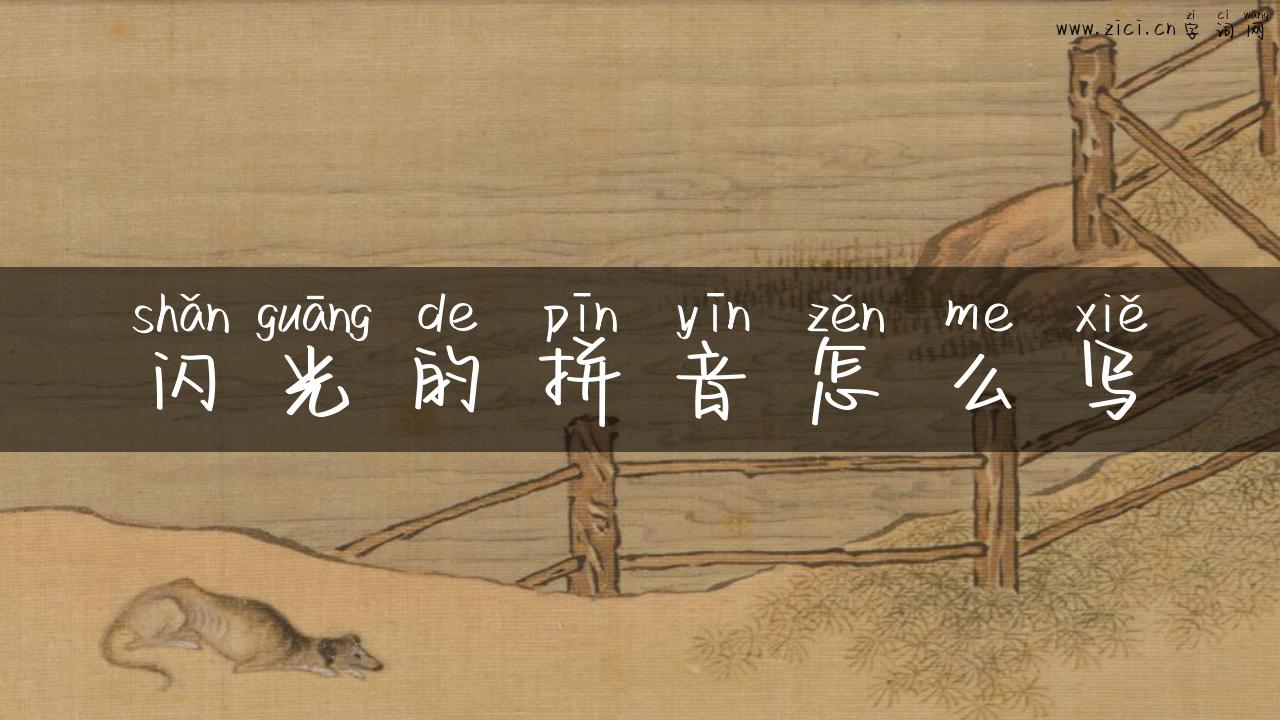 zi ci wang
www.zici.cn 字词网
shǎn guāng de pīn yīn zěn me xiě
闪光的拼音怎么写